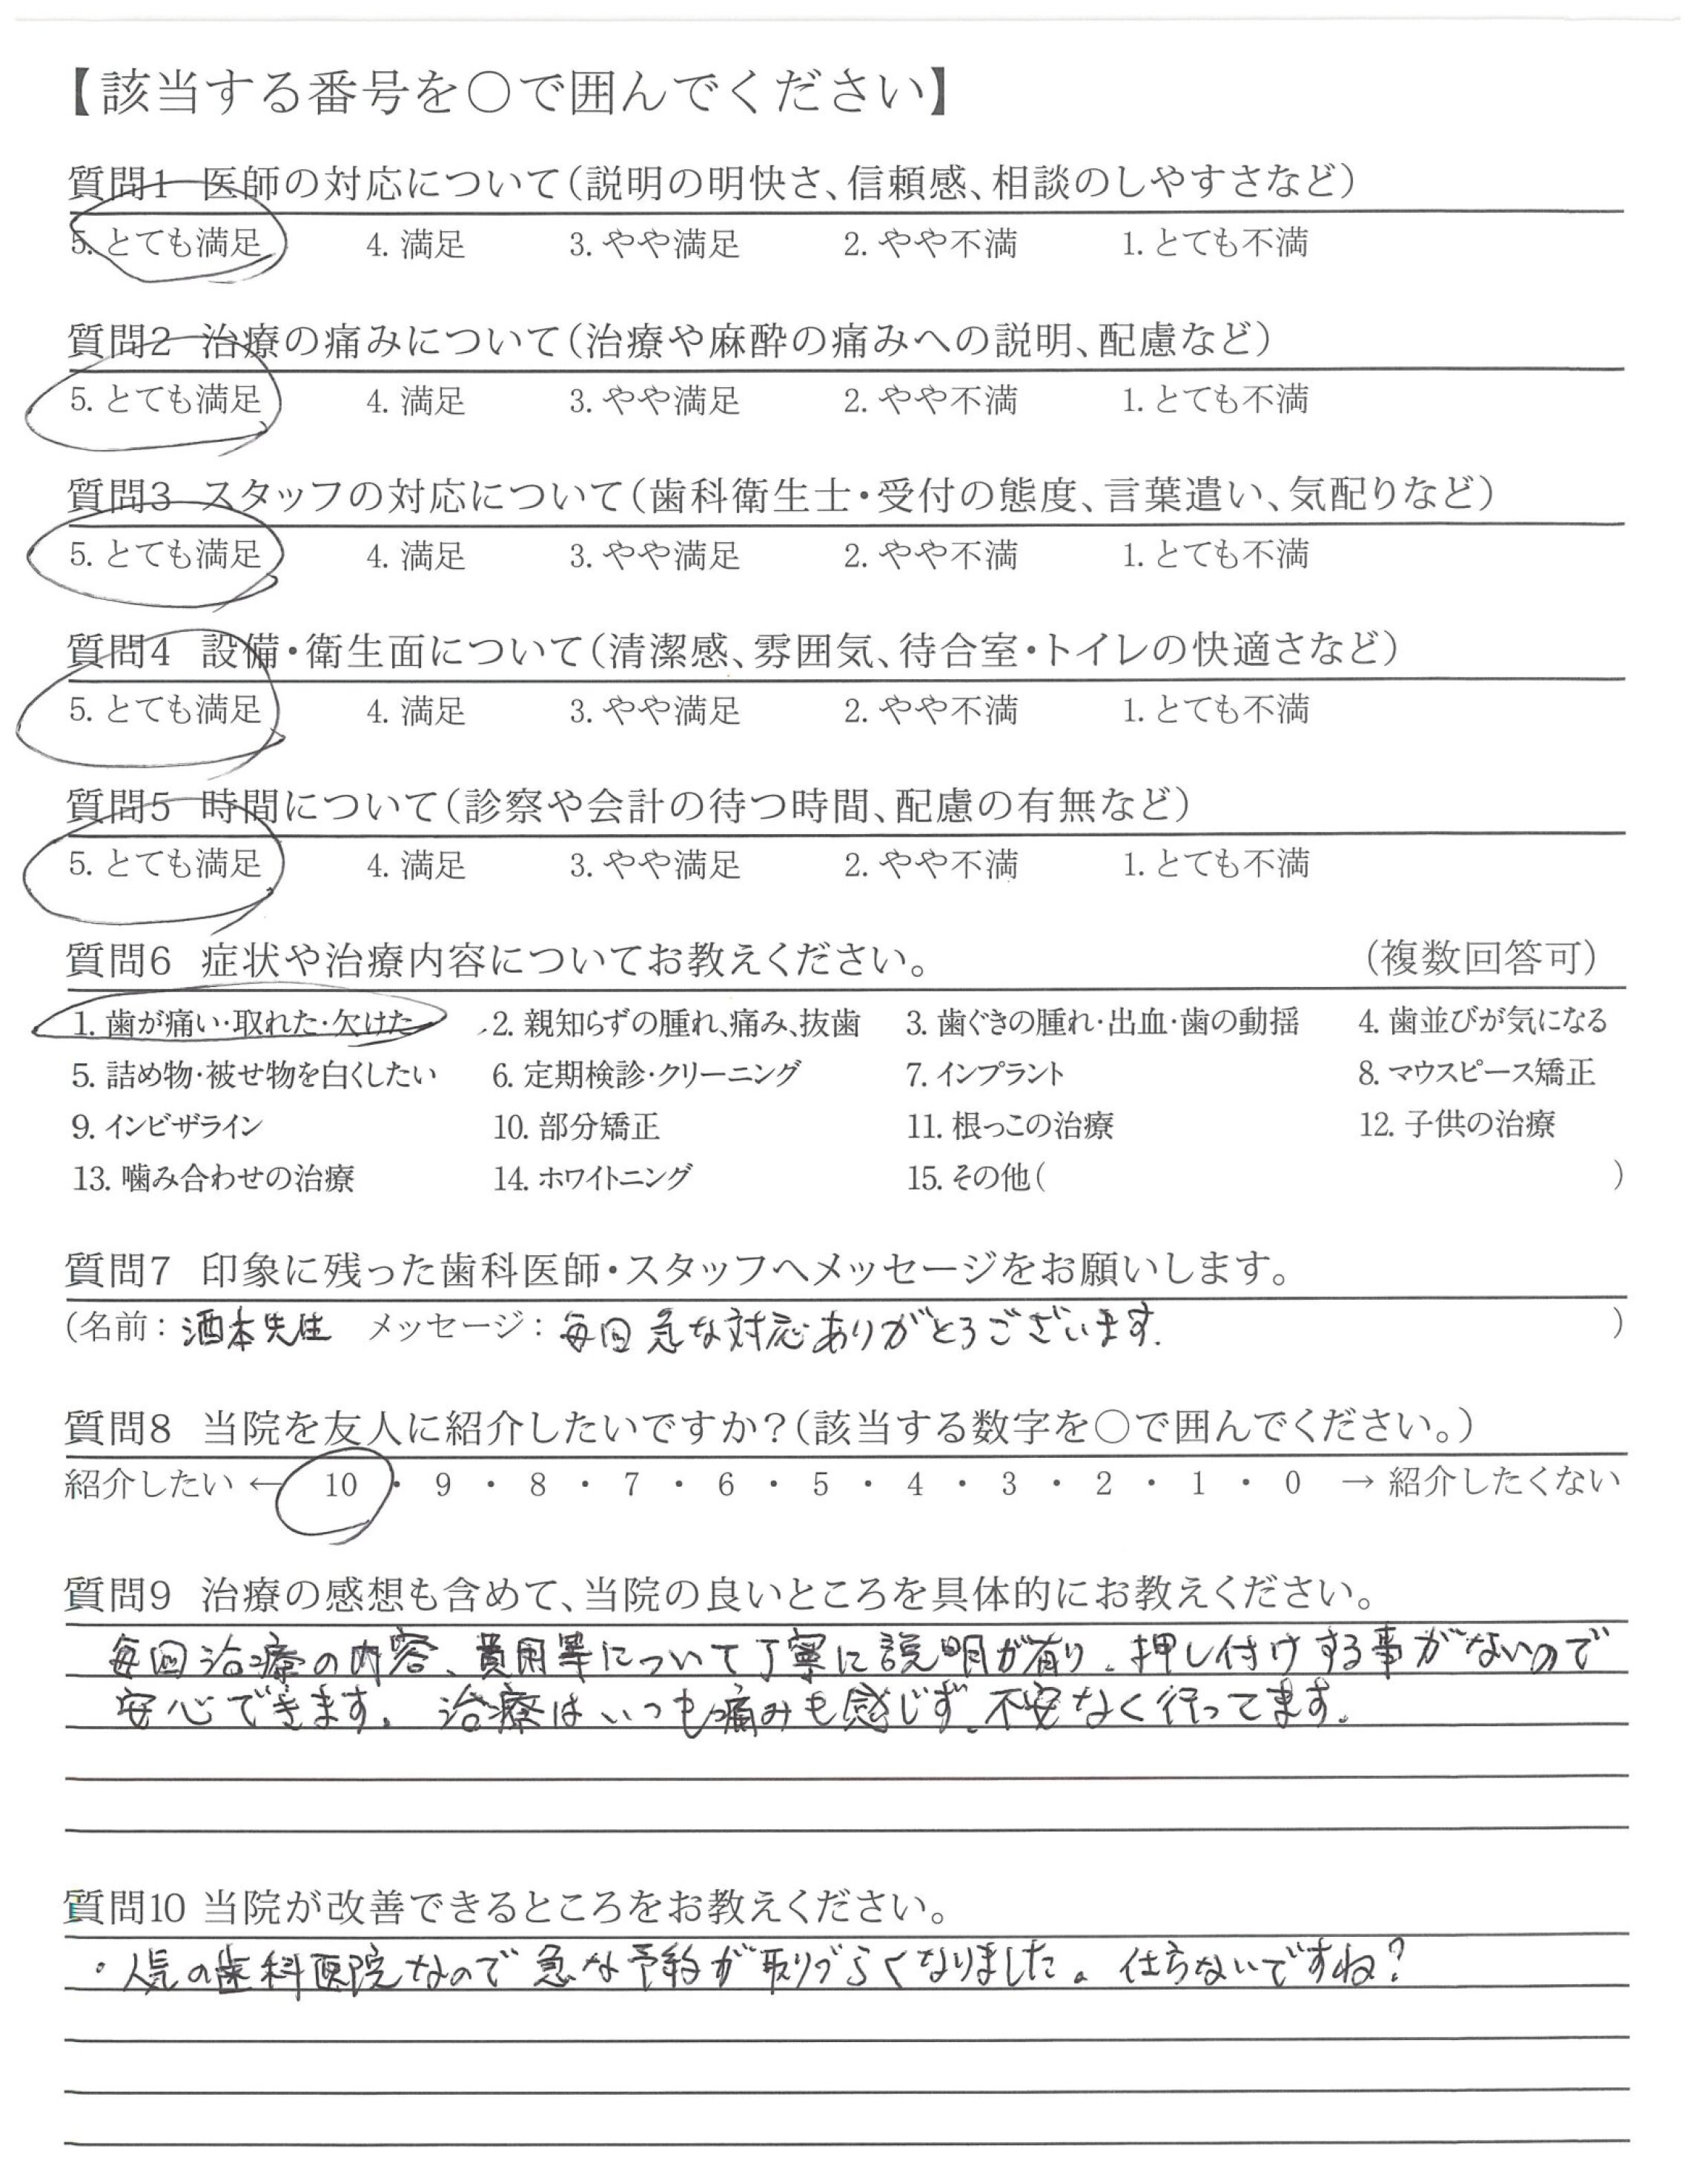 【該当する番号を〇で囲んでください】
質問1 医師の対応について(説明の明快さ、信頼感、相談のしやすさなど)
5. とても満足 4. 満足 3. やや満足 2. やや不満 1. とても不満
質問2 治療の痛みについて(治療や麻酔の痛みへの説明、配慮など)
5. とても満足 4. 満足 3. やや満足 2. やや不満 1. とても不満
質問3 スタッフの対応について(歯科衛生士・受付の態度、言葉遣い、気配りなど)
5. とても満足 4. 満足 3. やや満足 2. やや不満 1. とても不満
質問4 設備・衛生面について(清潔感、雰囲気、待合室・トイレの快適さなど)
5. とても満足 4. 満足 3. やや満足 2. やや不満 1. とても不満
質問5 時間について(診察や会計の待つ時間、配慮の有無など)
5. とても満足 4. 満足 3. やや満足 2. やや不満 1. とても不満
質問6 症状や治療内容についてお教えください。 (複数回答可)
1. 歯が痛い・取れた・欠けた 2. 親知らずの腫れ、痛み、抜歯 3. 歯ぐきの腫れ・出血・歯の動揺 4. 歯並びが気になる
5. 詰め物・被せ物を白くしたい 6. 定期検診・クリーニング 7. インプラント 8. マウスピース矯正
9. インビザライン 10. 部分矯正 11. 根っこの治療 12. 子供の治療
13. 噛み合わせの治療 14. ホワイトニング 15. その他( )
質問7 印象に残った歯科医師・スタッフへメッセージをお願いします。
(名前：酒本先生 メッセージ：毎回急な対応ありがとうございます. )
質問8 当院を友人に紹介したいですか？(該当する数字を〇で囲んでください。)
紹介したい ← 10 ・ 9 ・ 8 ・ 7 ・ 6 ・ 5 ・ 4 ・ 3 ・ 2 ・ 1 ・ 0 → 紹介したくない
質問9 治療の感想も含めて、当院の良いところを具体的にお教えください。
毎回治療の内容、費用等について丁寧に説明が有り、押し付けする事がないので
安心できます。治療はいつも痛みも感じず、不安なく行ってます。
質問10 当院が改善できるところをお教えください。
・人気の歯科医院なので急な予約が取りづらくなりました。仕方ないですね？